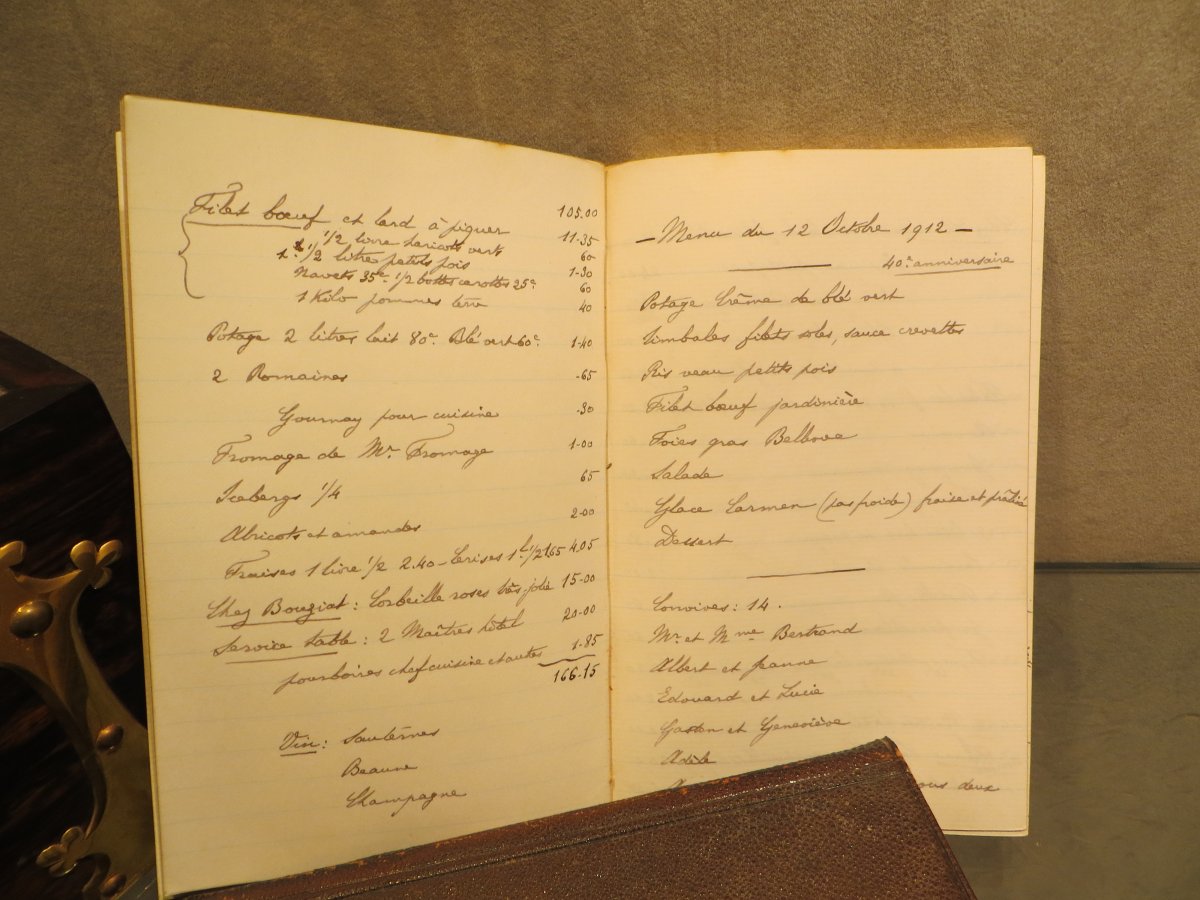 105.00
Filet bœuf et lard à piquer 11-35
1/2 livre haricots verts 60
1. 1/2 litre petits pois 1-30
Navets 35c. 1/2 bottes carottes 25c 60
1 Kilo pommes terre 40
Potage 2 litres lait 80c. Blé vert 60c. 1-40
2 Romaines -65
Gournay pour cuisine -30
Fromage de Mr. Fromage 1-00
Icebergs 1/4 65
Abricots et amandes 2-00
Fraises 1 livre 1/2 2.40 - Cerises 1 l. 1/2 1.65 4.05
Chez Bougiat: Corbeille roses très-jolie 15-00
Service table: 2 Maîtres hôtel 20-00
pourboires chef cuisine et autres 1-85
166-15
Vin: Sauternes
Beaune
Champagne
- Menu du 12 Octobre 1912 -
40e. anniversaire
Potage Crême de blé vert
Timbales filets soles, sauce crevettes
Ris veau petits pois
Filet bœuf jardinière
Foies gras Bellove
Salade
Glace Carmen (pas froide) fraise et praliné
Dessert
Convives: 14.
Mr. et Mme Bertrand
Albert et Jeanne
Edouard et Lucie
Gaston et Geneviève
Adèle
deux